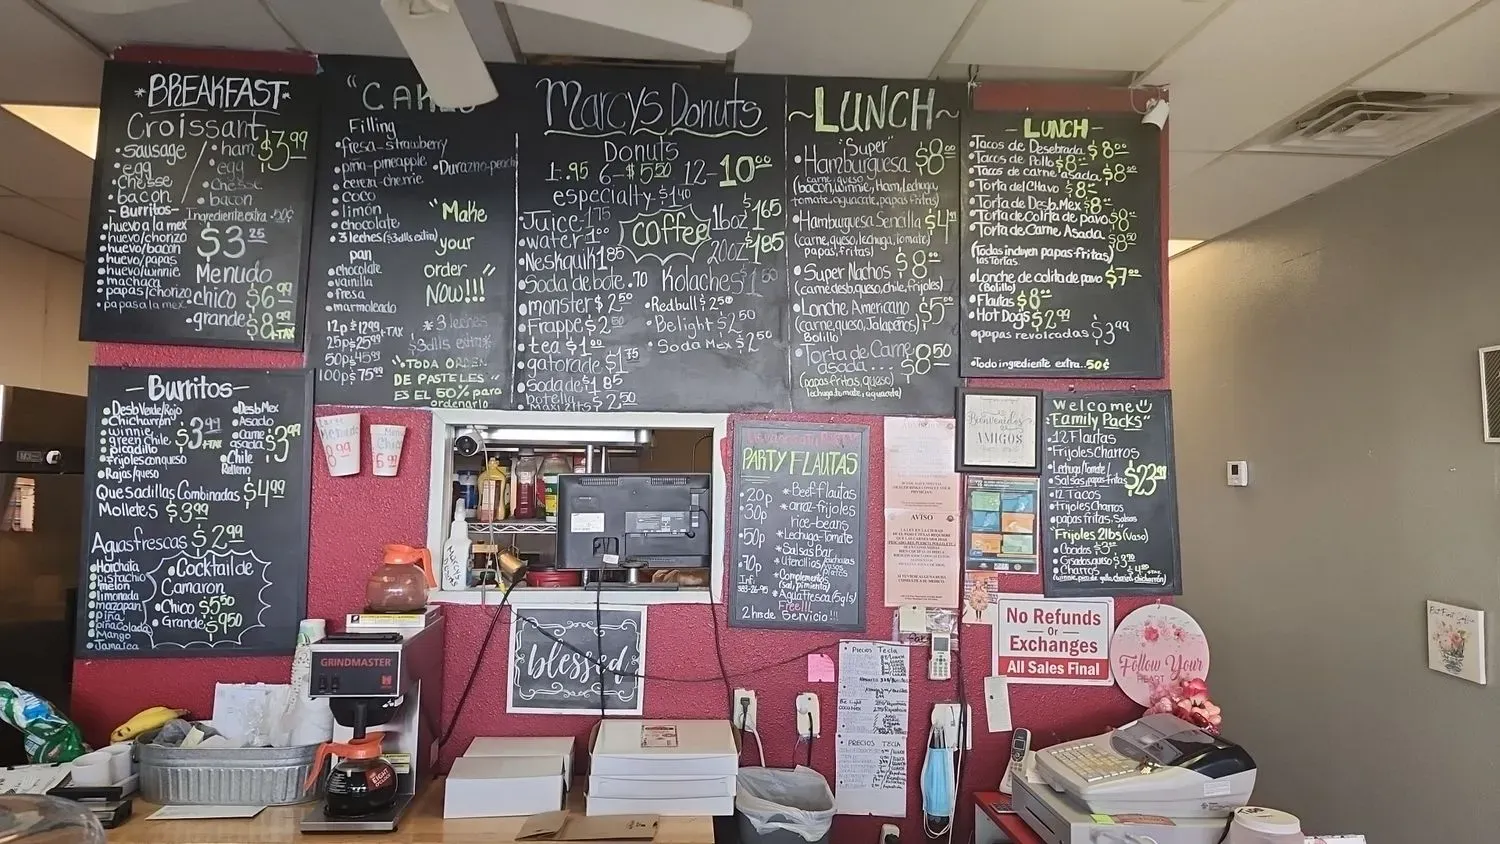 *BREAKFAST*
Croissant $3.99
• sausage
egg
• chesse
bacon
• ham
egg
• chesse
• bacon
- Burritos -
Ingrediente extra .50¢
• huevo a la mex
• huevo/chorizo
• huevo/bacon
• huevo/papas
• huevo/winnie
• machaca
• papas/chorizo
• papas a la mex
$3.25
Menudo
• chico $6.99
• grande $8.99
+TAX
Filling
• fresa-strawberry
• piña-pineapple
• cereza-cherrie
• Durazno-peach
• coco
• limón
• chocolate
• 3 leches ($3dlls extra)
pan
• chocolate
• vainilla
• fresa
• marmoleado
"Make
your
order
NOW!!!"
12p $12.99 +TAX
25p $25.99
50p $45.99
100p $75.99
* 3 leches
$3dlls extra *
"TODA ORDEN
DE PASTELES
ES EL 50% para
ordenarlo
Marcys Donuts
Donuts
1-.95 6-$5.50 12-10.00
especialty $1.40
• Juice 1.75
• water 1.00
• Neskquik 1.85
• Soda de bote .70
• monster $2.50
• Frappe $2.50
• tea $1.00
• gatorade $1.75
• Soda de $1.85
botella
$2.50
coffee
16oz $1.65
20oz $1.85
Kolaches $1.50
• Redbull $2.50
• Belight $2.50
• Soda Mex $2.50
~LUNCH~
"Super"
• Hamburguesa $8.00
carne, queso
(bacon, winnie, Ham, lechuga,
tomate, aguacate, papas fritas)
• Hamburguesa Sencilla
(carne, queso, lechuga, tomate)
papas, fritas)
• Super Nachos $8.00
(carne desb, queso, chile, frijoles)
• Lonche Americano $5.00
(carne, queso, Jalapaños)
Bolillo
• Torta de Carne
asada... $8.50
(papas fritas, queso)
lechuga, tomate, aguacate)
- LUNCH -
• Tacos de Desebrada $8.00
• Tacos de Pollo $8.00
• Tacos de carne asada $8.00
• Torta del Chavo $8.00
• Torta de Desb. Mex $8.00
• Torta de Colita de pavo $8.00
• Torta de Carne Asada $8.50
(Todas incluyen papas-fritas)
las tortas
• Lonche de colita de pavo $7.00
(Bolillo)
• Flautas $8.00
• Hot Dogs $2.99
• papas revolcadas $3.99
• Todo ingrediente extra .50¢
- Burritos -
• Desb Verde/Rojo
• Chicharron
• winnie
• green chile
• Picadillo
• Frijoles con queso
• Rajas/queso
$3.99 +TAX
• Desb Mex
• Asado
• Carne
asada
• Chile
Relleno
$3.99
Quesadillas Combinadas $4.99
Molletes $3.99
Aguas frescas $2.99
• Horchata
• pistachio
• melon
• limonada
• mazapan
• Piña
• piña colada
• Mango
• Jamaica
• Cocktail de
Camaron
• Chico $5.50
• Grande $9.50
Menudo
8.99
$6.99
PARTY FLAUTAS
• 20p
• 30p
• 50p
• 70p
* Beef flautas
* arroz-frijoles
rice-beans
* Lechuga-Tomate
* Salsas Bar
* Utencilios
platos
* Complementos
(Sal, pimienta)
* Aguafresca (5gls)
Free!!!
2 hrs de Servicio!!!
Bienvenidos
AMIGOS
Welcome
"Family Packs"
• 12 Flautas
• Frijoles Charros
• Lechuga/Tomate/
• Salsas, papas fritas
$23.99
• 12 Tacos
• frijoles Charros
• papas fritas, Salsas
"Frijoles 2lbs (Vaso)
• Cocidos
• Charros
AVISO
blessed
GRINDMASTER
No Refunds
Or
Exchanges
All Sales Final
Follow Your
HEART
PRECIOS TECLA
PRECIOS TECLA